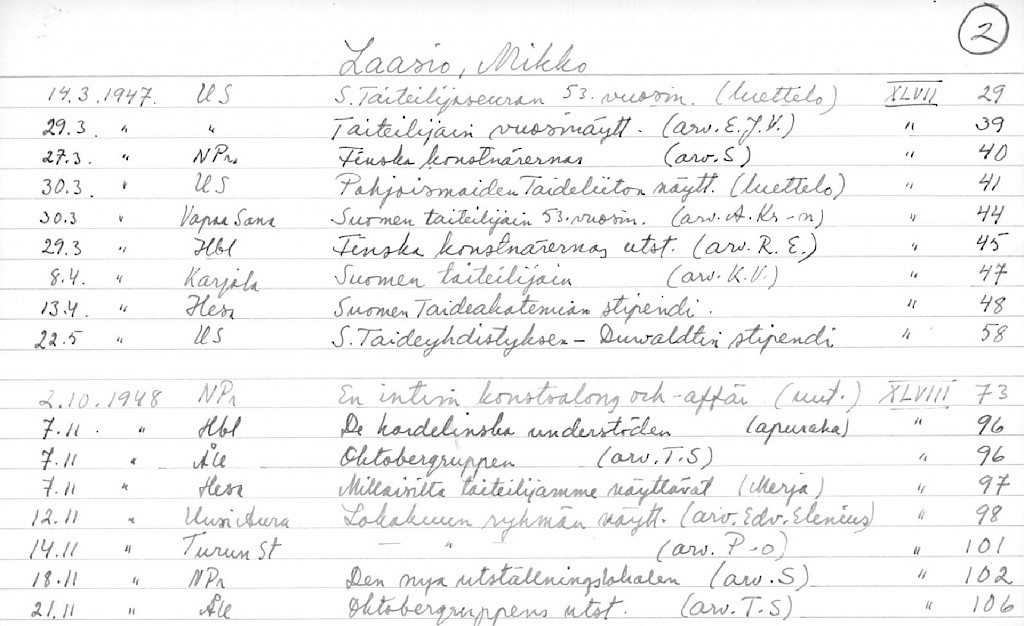 2
Laasio, Mikko
14.3.1947. US S.Taiteilijaseuran 53. vuosin. (luettelo) XLVII 29
29.3. " " Taiteilijain vuosinäytt. (arv. E.J.V.) " 39
27.3. " NPr. Finska konstnärernas (arv. S) " 40
30.3. " US Pohjoismaiden Taideliiton näytt. (luettelo) " 41
30.3 " Vapaa Sana Suomen taiteilijain 53. vuosin. (arv. A. Kr-n) " 44
29.3 " Hbl Finska konstnärernas utst. (arv. R. E.) " 45
8.4. " Karjala Suomen taiteilijain (arv. K.V.) " 47
13.4. " Hesa Suomen Taideakatemian stipendi. " 48
22.5 " US S.Taideyhdistyksen – Duwaldtin stipendi " 58
2.10.1948 NPr En intim konstsalong och -affär (uut.) XLVIII 73
7.11. " Hbl De hordelinska understöden (apuraha) " 96
7.11 " Åle Oktobergruppen (arv. T.S) " 96
7.11 " Hesa Millaisilta taiteilijamme näyttävät (Merja) " 97
12.11 " Uusi Aura Lokakuun ryhmän näytt. (arv. Edv. Elenius) " 98
14.11 " Turun St — " — (arv. P-o) " 101
18.11 " NPr Den nya utställningslokalen (arv. S) " 102
21.11 " Åle Oktobergruppens utst. (arv. T-S) " 106